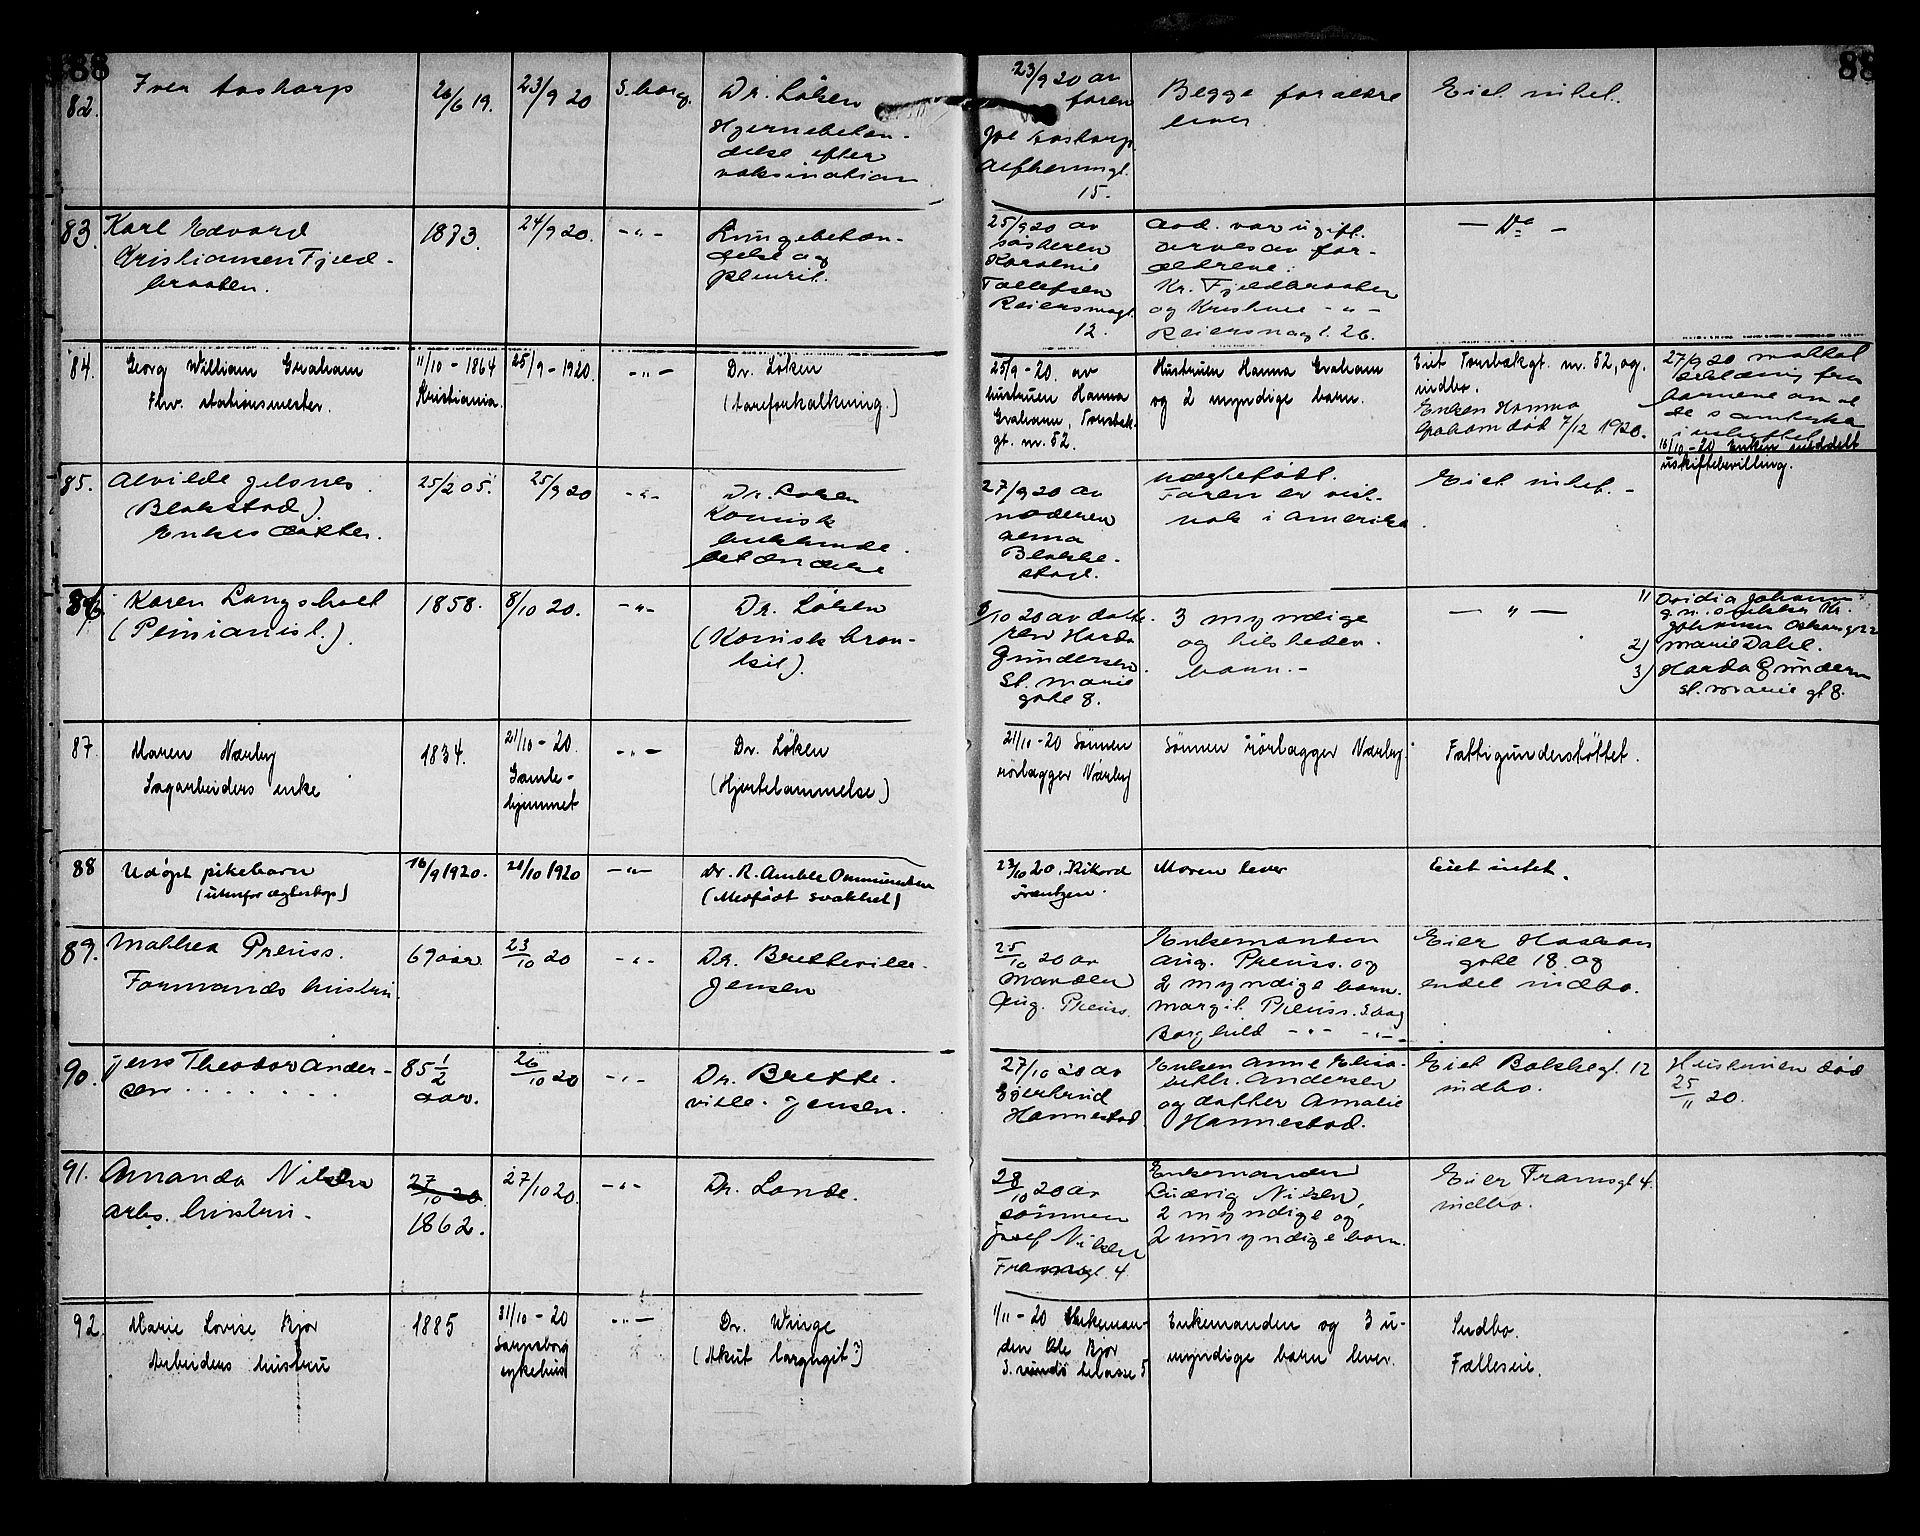 88
88
82.
Iver Aaskorp
26/6 19.
23/9 20
S.borg.
Dr. Løken
Hjernebetæn-
delse efter
vaksination
23/9 20 av
faren
Aaskorp
15.
Begge forældre
lever.
Eiet intet.
83.
Karl Edvard
Kristiansen Fjeld-
braaten.
1873.
24/9 20.
-"-
Lungebetæn-
delse og
pleurit.
25/9 20 av
søsteren
Karoline
Tollefsen
12.
Avd. var ugift.
arves av for-
ældrene:
Kr. Fjeldbraaten
og Kristine -"-
26.
- Do -
84.
Georg William Graham
Fhv. stationsmester.
11/10 - 1864
Kristiania.
25/9 - 1920.
-"-
Dr. Løken
(Aareforkalkning.)
25/9 - 20. av
hustruen Hanna
Graham, Torsbæk-
gt. nr. 52.
Hustruen Hanna Graham
og 2 myndige barn.
Eiet Torsbækgt. nr. 52, og
indbo.
Enken Hanna
Graham død 7/12 1920.
27/9 20 mottat
erklæring fra
barnene om at
de samtykker
i uskiftet
16/10 - 20 Enken meddelt
uskiftebevilling.
85.
Alvilde Jelsnes
(Blakstad)
Enkes datter.
25/2 05.
25/9 20
-"-
Dr. Løken
Kronisk
betændelse
27/9 20 av
moderen
Blakke-
stad.
Uægtefødt.
Faren er vist-
nok i Amerika
Eiet intet. -
86
Karen Langsholt
(Pensionist).
1858.
8/10 20.
-"-
Dr. Løken
(Kronisk bron-
kit).
8/10 20 av datte-
ren Harda
Gundersen
St. Marie
gate 8.
3 myndige
og tilsteden.
barn. -
- " -
1) Ovidia Johansen
2) Marie Dahl.
3) Harda Gundersen
St. Marie gt 8.
87
Maren Nærby
Sagarbeiders enke
1834.
21/10 - 20.
Gamle-
hjemmet
-"-
Dr. Løken
(Hjertelammelse)
21/10 - 20 Sønnen
rørlægger Nærby
Sønnen rørlægger Nærby.
Fattigunderstøttet.
88
Udøpt pikebarn
(utenfor ægteskap)
16/9 1920.
21/10 1920
-"-
Dr. R. Amble Ommundsen
(Medfødt svakhet)
23/10 20. Rikard
Frantzen.
Moren lever
Eiet intet.
89.
Mathea Preuss.
Formands hustru.
69 aar
23/10 20
-"-
Dr. Bretteville-
Jensen
25/10 20 av
manden
Aug. Preuss.
Enkemanden
Aug. Preuss. og
2 myndige barn.
Margit Preuss. S.borg
Borghild -"- -"-
Eier Haakons
gate 18 og
endel indbo.
90.
Jens Theodor Ander-
sen . . . . . .
85 1/2
aar.
26/10 20
-"-
Dr. Brette-
ville-Jensen.
27/10 20 av
Gjertrud
Hannestad
Enken Anne Elisa-
beth. Andersen
og datter Amalie
Hannestad.
Eiet Bakkegt. 12
indbo.
Hustruen død
25/11 20.
91.
Amanda Nilsen
arb. hustru -
27/10 20
1862.
27/10 20.
-"-
Dr. Lande.
28/10 20 av
sønnen
Josef Nilsen
Framsgt. 4
Enkemanden
Ludvig Nilsen,
2 myndige og
2 umyndige barn.
Eier Framsgt 4.
indbo.
92.
Marie Lovise Kjør
Arbeiders hustru
1885
31/10 - 20
Sarpsborg
sykehus
-"-
Dr. Winge
(Akut laryngit?)
1/11 - 20 Enkeman-
den Ole Kjør
5
Enkemanden og 3 u-
myndige barn lever.
Indbo.
Fælleseie.